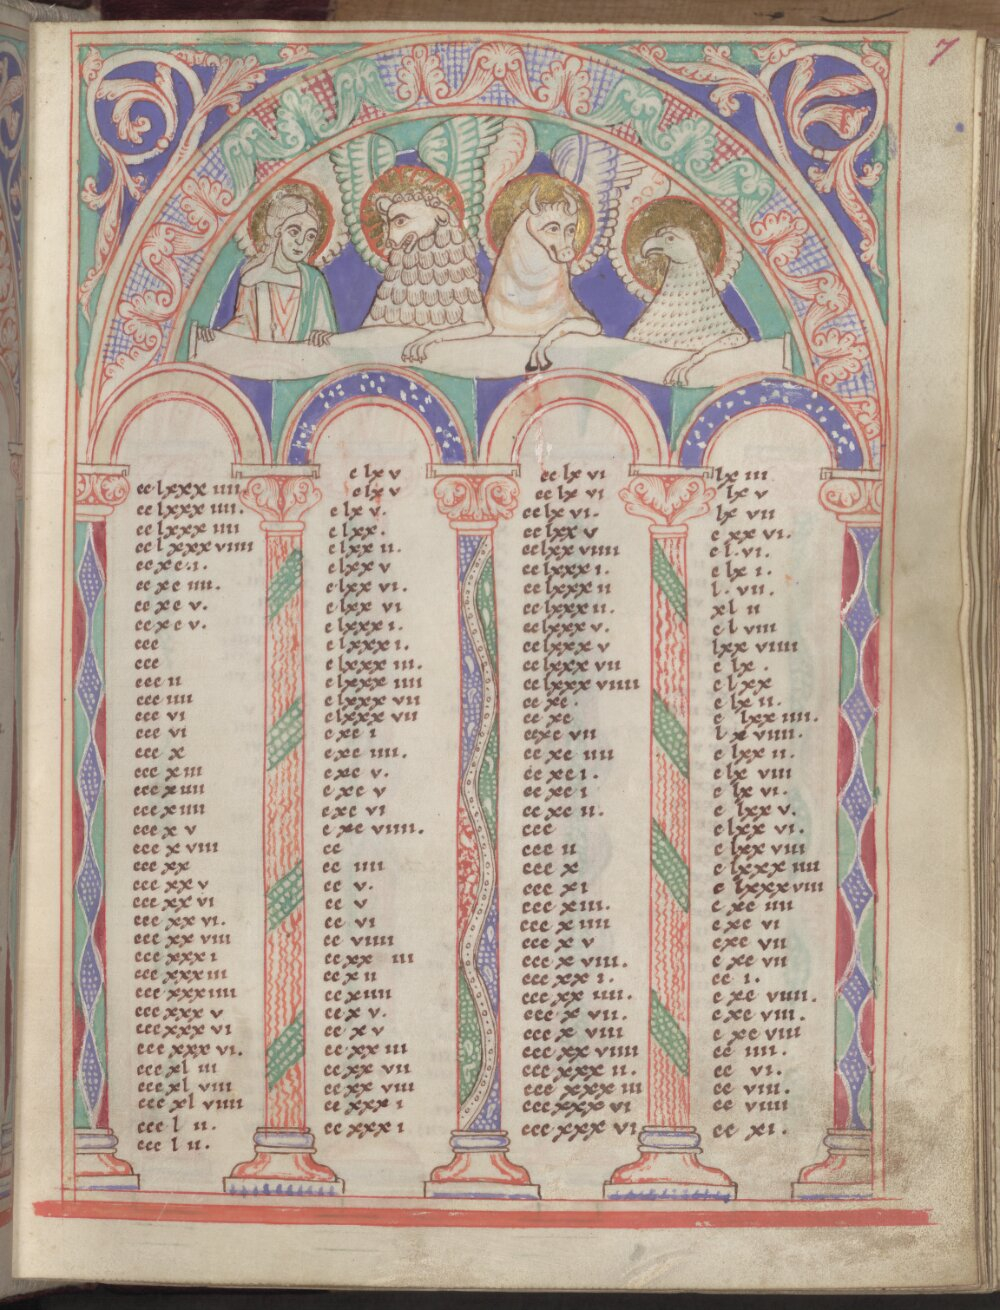 7
cc lxxx iiii
cc lxxx iiii.
cc lxxx iiii
cc lxxx viiii
cc xc i.
cc xc iiii.
cc xc v.
cc xc v.
ccc
ccc
ccc ii
ccc iiii
ccc vi
ccc vi
ccc x
ccc xiii
ccc xiiii
ccc xiiii
ccc x v
ccc x viii
ccc xx
ccc xx v
ccc xx vi
ccc xx vi.
ccc xx viii
ccc xxx i
ccc xxx iii
ccc xxx iiii
ccc xxx v
ccc xxx vi
ccc xxx vi.
ccc xl iii
ccc xl viii
ccc xl viiii
ccc l ii.
ccc l ii.
c lx v
c lx v
c lx v.
c lxx.
c lxx ii.
c lxx v
c lxx vi.
c lxx vi
c lxxx i.
c lxxx i.
c lxxx iii.
c lxxx iiii
c lxxx vii
c lxxx vii
c xc i
c xc iiii.
c xc v.
c xc v
c xc vi
c xc viiii.
cc
cc iiii
cc v.
cc v
cc vi
cc viiii
cc xx iii
cc x ii
cc xiiii
cc x v.
cc x v
cc xx iii
cc xx vii
cc xx viii
cc xxx i
cc xxx i
cc lx vi
cc lx vi
cc lx vi.
cc lxx v
cc lxx viiii
cc lxxx i.
cc lxxx ii
cc lxxx ii.
cc lxxx v.
cc lxxx v
cc lxxx vii
cc lxxx viiii
cc xc.
cc xc
cc xc vii
cc xc iiii
cc xc i.
cc xc i
cc xc ii.
ccc
ccc ii
ccc x
ccc xi
ccc xiii.
ccc x iiii
ccc x v
ccc x viii.
ccc xx i.
ccc xx iiii.
ccc x vii.
ccc x viii
ccc xx viiii
ccc xxx ii.
ccc xxx iii
ccc xxx vi
ccc xxx vi
lx iii
lx v
lx vii
c xx vi.
c l. vi.
c lx i.
l. vii.
xl ii
c l viii
lxx viiii
c lx .
c lxx
c lx ii.
c lxx iiii.
l x viiii.
c lxx ii.
c lx viii
c lx vi.
c lxx v.
c lxx vi.
c lxx viii
c lxxx iiii
c lxxx viii
c xc iiii
c xc vi
c xc vii
c xc vii
cc i.
c xc viiii.
c xc viii.
c xc viii
cc iiii.
cc vi.
cc viii.
cc viiii
cc xi.